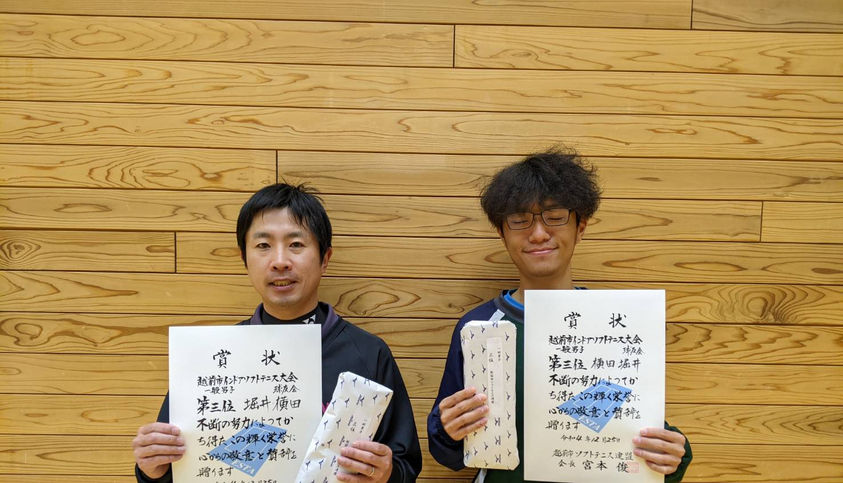 賞状
越前市インドアソフトテニス大会
一般男子 球友会
第三位 堀井 横田
不断の努力によってか
ち得たこの輝く栄誉に
心からの敬意と賛辞を
贈ります
賞状
越前市インドアソフトテニス大会
一般男子 球友会
第三位 横田 堀井
不断の努力によってか
ち得たこの輝く栄誉に
心からの敬意と賛辞を
贈ります
令和4年12月25日
越前市ソフトテニス連盟
会長 宮本 俊
一般男子
三位